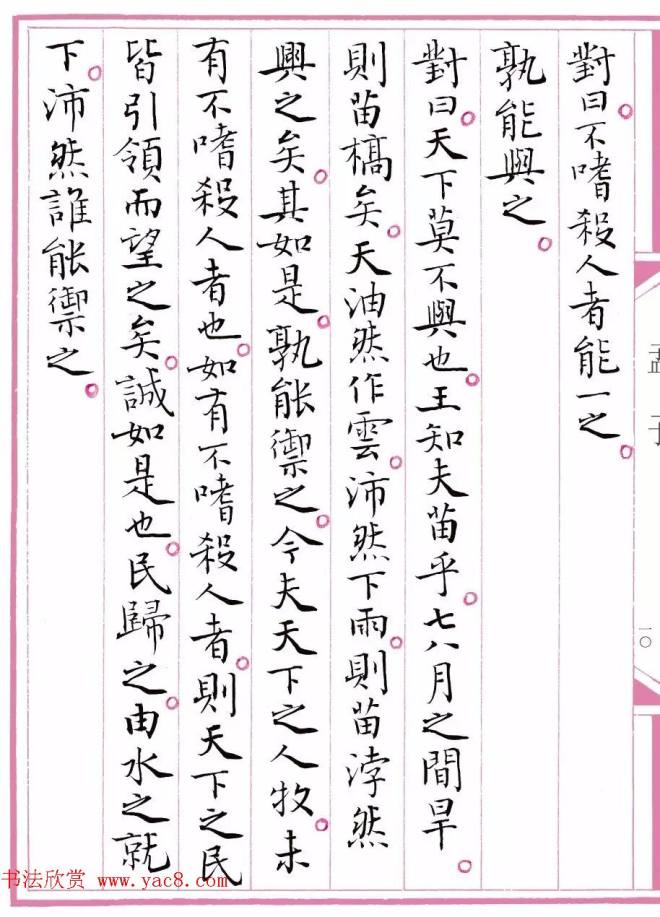 對曰。不嗜殺人者能一之。
孰能與之。
對曰。天下莫不與也。王知夫苗乎。七八月之間旱。
則苗槁矣。天油然作雲。沛然下雨。則苗浡然
興之矣。其如是。孰能禦之。今夫天下之人牧。未
有不嗜殺人者也。如有不嗜殺人者。則天下之民
皆引領而望之矣。誠如是也。民歸之。由水之就
下。沛然誰能禦之。
孟子
一〇
书法欣赏 www.yac8.com